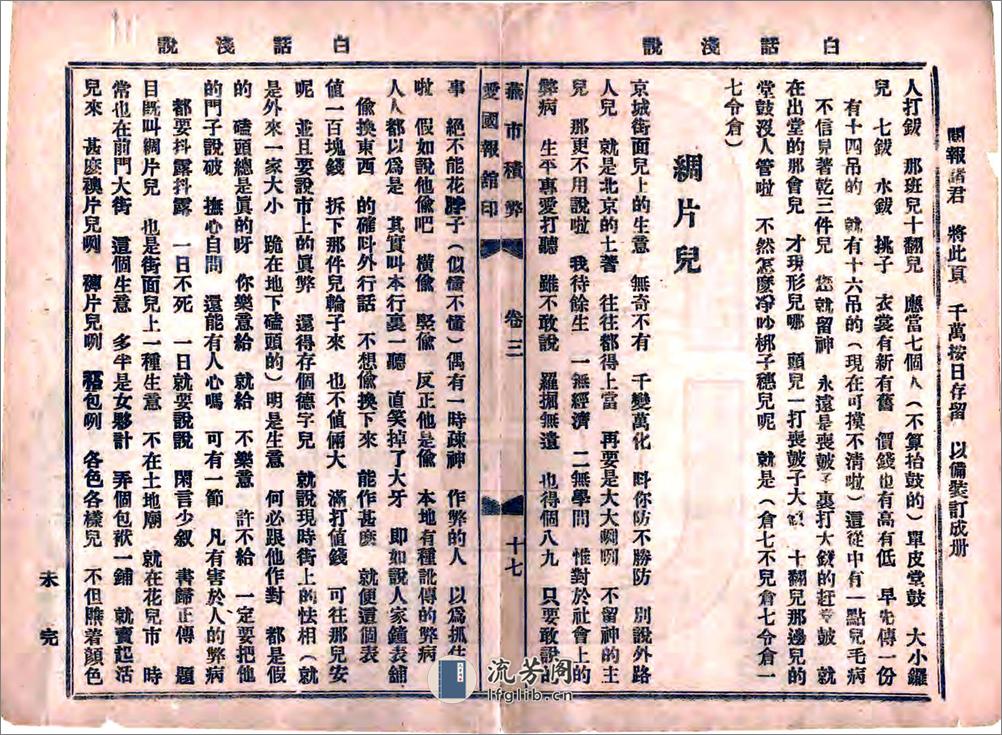 白話淺說
閱報諸君 將此頁 千萬按日存留 以備裝訂成册
人打鈸 那班兒十翻兒 應當七個人(不算抬鼓的)單皮堂鼓 大小鑼
兒 七鈸 水鈸 挑子 衣裳有新有舊 價錢也有高有低 早先傳一份
有十四吊的 就有十六吊的(現在可摸不清啦)這從中有一點兒毛病
不信兒著乾三件兒 您就留神 永遠是喪皷子裏打大鈸的赶堂皷 就
在出堂的那會兒 才現形兒哪 頭兒一打喪皷子大鈸 十翻兒那邊兒的
堂鼓沒人管啦 不然怎麼凈吵梆子穗兒呢 就是(倉七不兒倉七令倉一
七令倉)
綢片兒
京城街面兒上的生意 無奇不有 千變萬化 呌你防不勝防 別說外路
人兒 就是北京的土著 往往都得上當 再要是大大咧咧 不留神的主
兒 那更不用說啦 我待餘生 一無經濟 二無學問 惟對於社會上的
弊病 生平專愛打聽 雖不敢說 羅掘無遺 也得個八九 只要敢說
白話淺說
燕市積弊 卷三 十七
愛國報舘印
事 絕不能花脖子(似懂不懂)偶有一時疎神 作弊的人 以爲抓住
啦 假如說他偷吧 橫偷 竪偷 反正他是偷 本地有種訛傳的弊病
人人都以爲是 其實叫本行裏一聽 直笑掉了大牙 即如說人家鐘表舖
偷換東西 的確呌外行話 不想偷換下來 能作甚麽 就便這個表
值一百塊錢 拆下那件兒輪子來 也不值倆大 滿打值錢 可往那兒安
呢 並且要說市上的眞弊 還得存個德字兒 就說現時街上的怯相(就
是外來一家大小 跪在地下磕頭的)明是生意 何必跟他作對 都是假
的 磕頭總是眞的呀 你樂意給 就給 不樂意 許不給 一定要把他
的門子說破 撫心自問 還能有人心嗎 可有一節 凡有害於人的弊病
都要抖露抖露 一日不死 一日就要說說 閑言少叙 書歸正傳 題
目旣叫綢片兒 也是街面兒上一種生意 不在土地廟 就在花兒市 時
常也在前門大街 這個生意 多半是女夥計 弄個包袱一鋪 就賣起活
兒來 甚麽襖片兒咧 褲片兒咧 包咧 各色各樣兒 不但勝着顏色
未完
流芳閣
lfglib.cn